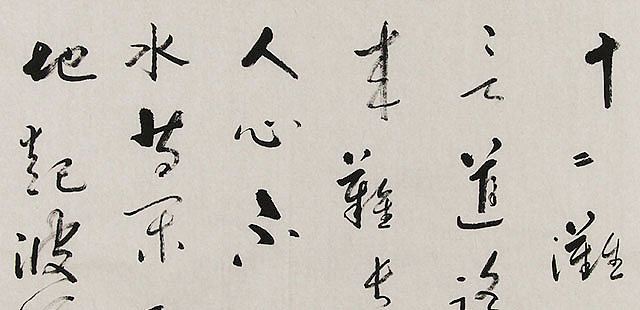 十二灘
言道路
来難長
人心不
水等閑
地起波